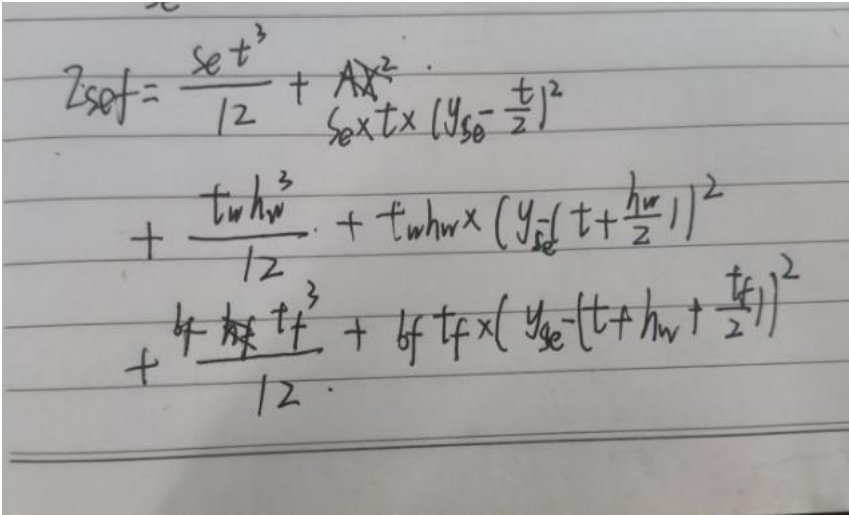 Isef = se t³ / 12 + se × t × (yse - t/2)²
+ tw hw³ / 12 + tw hw × (yse - (t + hw/2))²
+ bf tf³ / 12 + bf tf × (yse - (t + hw + tf/2))²